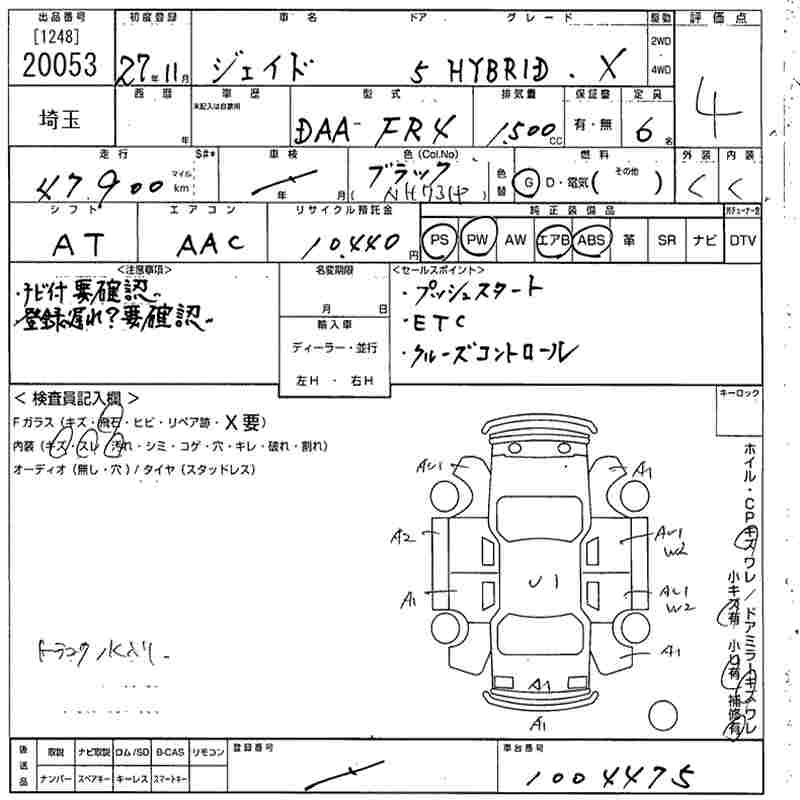 出品番号 初度登録 車名 ドア グレード 駆動 評価点
[1248] 2WD
20053 27年11月 ジェイド 5 HYBRID・X ・ 4WD 4
埼玉 西暦 年 車歴 型式 排気量 保証書 定員
未記入は自家用 DAA-FR4 1,500cc 有・無 6名
走行 S#* 車検 色(Col.No) 色替 燃料 外装 内装
47,900 マイル km 年 月 ブラック (NH731P) G D・電気( その他 ) C C
シフト エアコン リサイクル預託金 純正装備品
AT AAC 10,440円 PS PW AW エアB ABS 革 SR ナビ DTV
<注意事項> 名変期限 <セールスポイント>
・ナビ付要確認。 月 日 ・プッシュスタート
登録遅れ?要確認。 輸入車 ・ETC
ディーラー・並行 ・クルーズコントロール
左H ・ 右H
<検査員記入欄> キーロック
Fガラス(キズ・飛石・ヒビ・リペア跡・X要)
内装(キズ・スレ・汚れ・シミ・コゲ・穴・キレ・破れ・割れ)
オーディオ(無し・穴)/タイヤ(スタッドレス)
AU1 A1
A2 AU1
W2
U1
A1 AU1
W2
A1
A1
A1
ホイル・CPキズワレ/ドアミラーキズワレ
小キズ有 小凹有 補修有
後送品 取説 ナビ取説 ロム/SD B-CAS リモコン 登録番号 車台番号
ナンバー スペアキー キーレス スマートキー 1004475